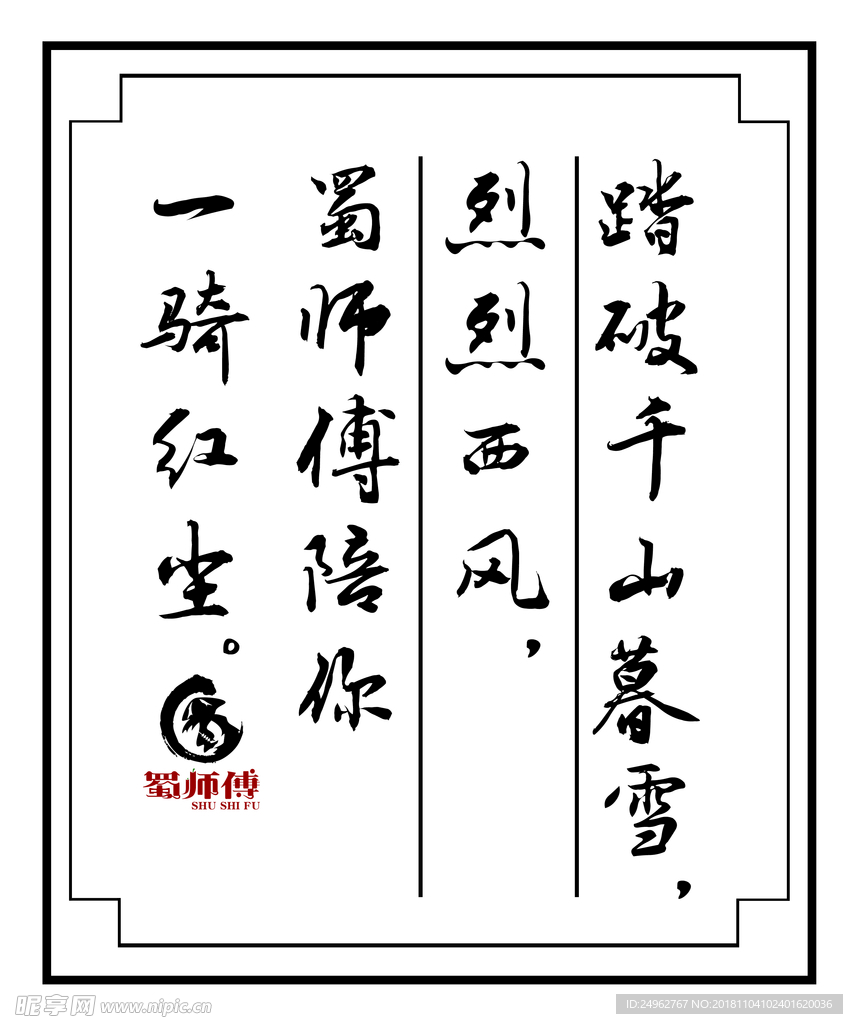 踏破千山暮雪，
烈烈西风，
蜀师傅陪你
一骑红尘。
蜀师傅
SHU SHI FU
昵享网 www.nipic.cn
ID:24962767 NO:20181104102401620036